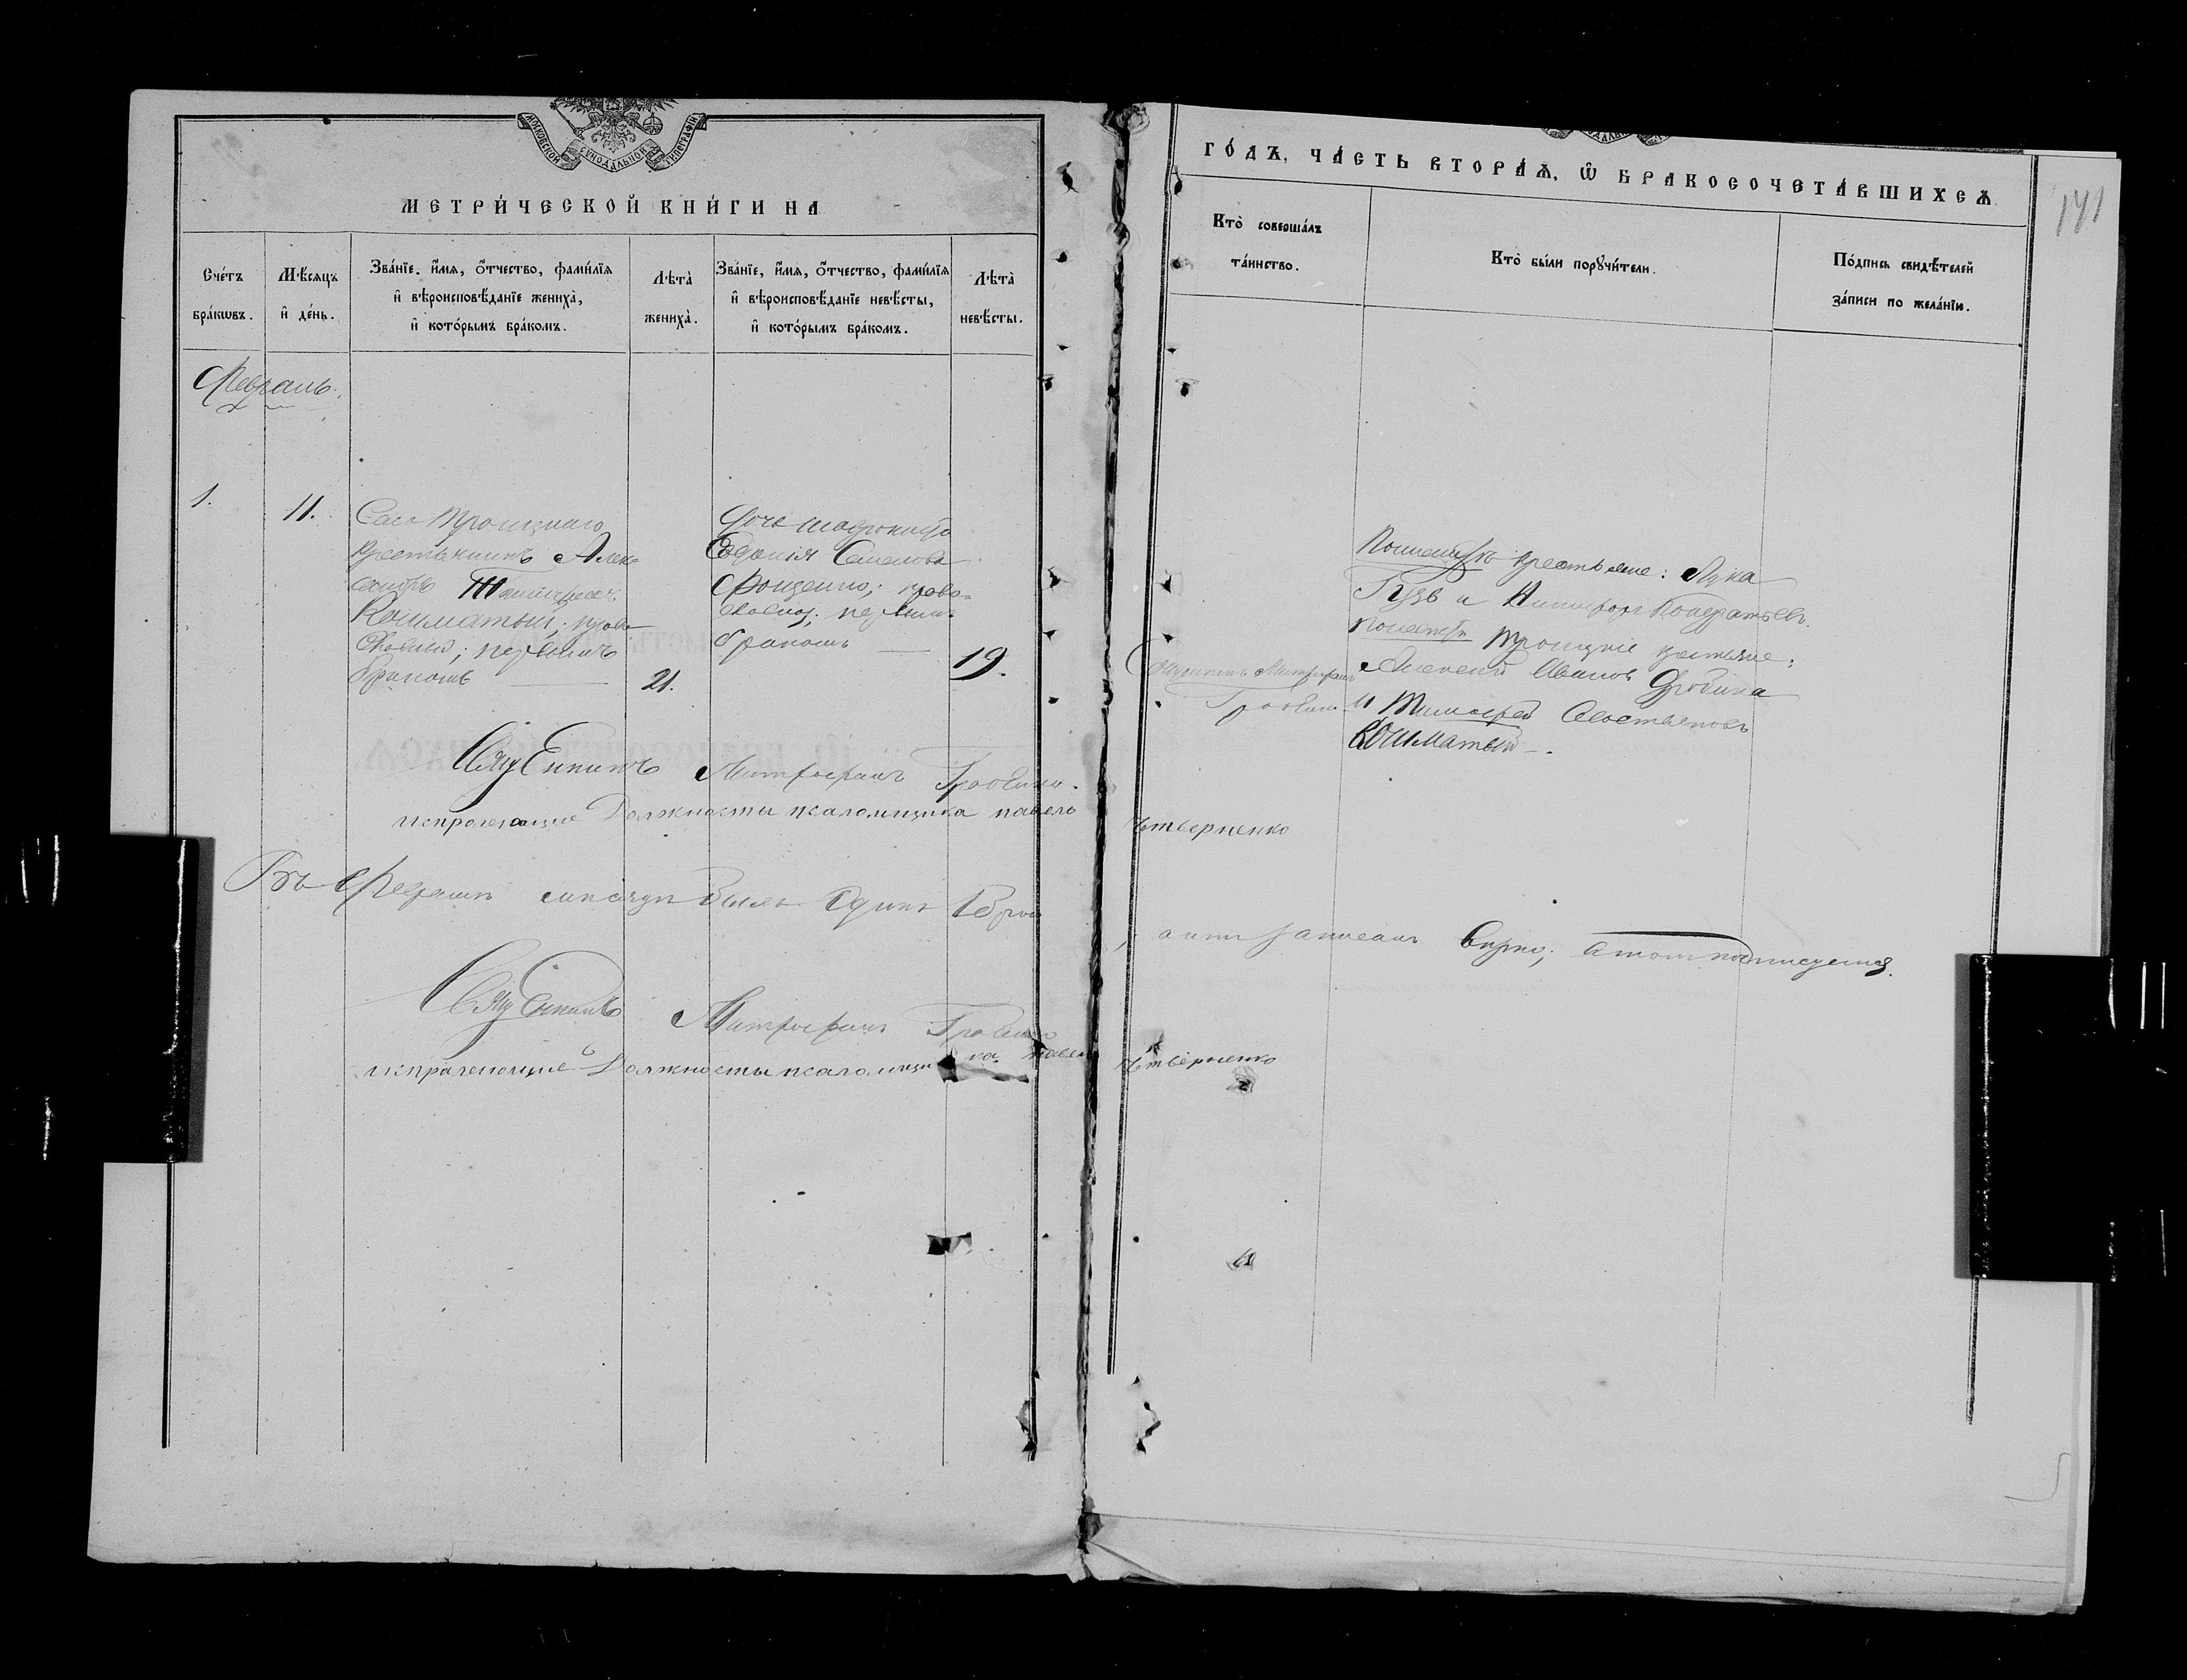 МОСКОВСКОЙ СѴНОДАЛЬНОЙ ТИПОГРАФІИ
МЕТРИ́ЧЕСКОЙ КНИ́ГИ НА
Сче́тъ бра́кѡвъ.
Мѣ́сяцъ и҆ де́нь.
Зва́нїе, и҆́мя, ѻ҆́тчество, фами́лїя и҆ вѣроисповѣ́данїе жениха̀, и҆ кото́рымъ бра́комъ.
Лѣ́та̀ жениха̀.
Зва́нїе, и҆́мя, ѻ҆́тчество, фами́лїя и҆ вѣроисповѣ́данїе невѣ́сты, и҆ кото́рымъ бра́комъ.
Лѣ́та̀ невѣ́сты.
Февраль.
1.
11.
Села Троицкаго
крестьянинъ Алек
сандръ
Кошматый; право
славный; первымъ
бракомъ
21.
Евдокія Семенова
; право-
славная; первымъ
бракомъ
19.
Священникъ Митрофанъ
исправляющие Должности псаломщика павелъ
Въ Февралѣ месяцѣ былъ Одинъ Бракъ
Священникъ Митрофанъ
исправляющие Должности псаломщика павел
ГО́ДЪ, ЧА́СТЬ ВТОРА́Ѧ, Ѡ҆ БРАКОСОЧЕТА́ВШИХСѦ
141
Кто̀ соверша́лъ та́инство.
Кто̀ бы́ли порꙋчи́тели.
По́дпись свидѣ́телей за́писи по жела́нїи.
Священникъ Митрофанъ
По женихѣ крестьяне: Лука
Гузь и Никифоръ Кондратьевъ.
По невѣстѣ Троицкіе крестьяне:
Алексей Иванов
и Тимофей Севостьяновъ
Кошматый.
Четверненко
, акт записанъ Вѣрно; в томъ подписуемся.
Четверненко